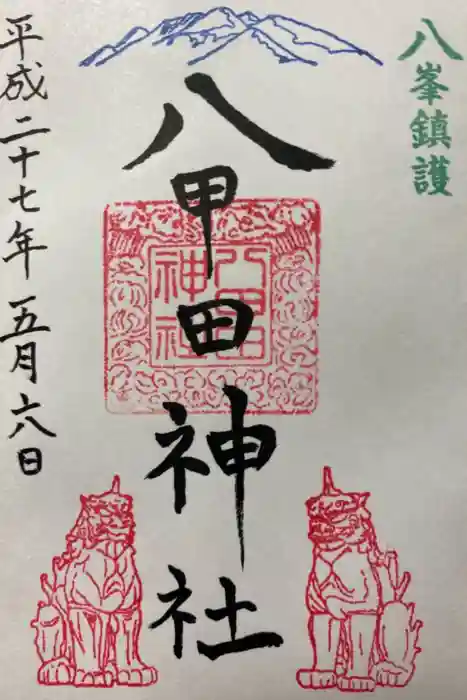 八峯鎮護
八甲田神社
八甲田
神社
平成二十七年五月六日